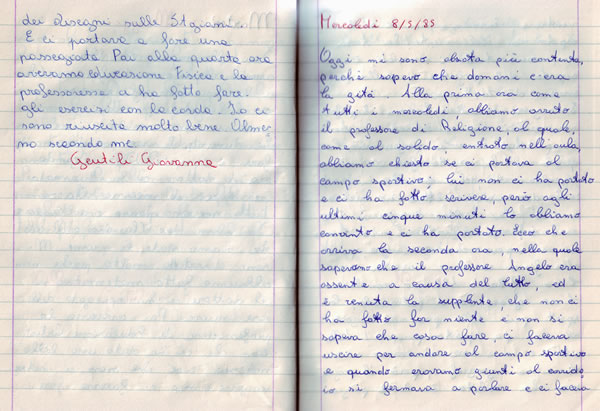 dei disegni sulle
E ci portava a fare una
passeggiata Poi alla quarta ora
avevamo Educazione Fisica e la
professoressa ci ha fatto fare
gli esercizi con la corda. Io ci
sono riuscita molto bene. Alme-
no secondo me.
Gentili Giovanna
Mercoledì 8/5/85
Oggi mi sono alzata più contenta,
perché sapevo che domani c'era
la gita. Alla prima ora come
tutti i mercoledì, abbiamo avuto
il professore di Religione, al quale,
come al solido, entrato nell'aula,
abbiamo chiesto se ci portava al
campo sportivo; lui non ci ha portato
e ci ha fatto scrivere, però agli
ultimi cinque minuti lo abbiamo
convinto e ci ha portato. Ecco che
arriva la seconda ora, nella quale
sapevamo che il professore Angelo era
assente a causa del lutto, ed
è venuta la supplente, che non ci
ha fatto far niente e non si
sapeva che cosa fare, ci faceva
uscire per andare al campo sportivo
e quando eravamo giunti al
io si fermava a parlare e ci faceva